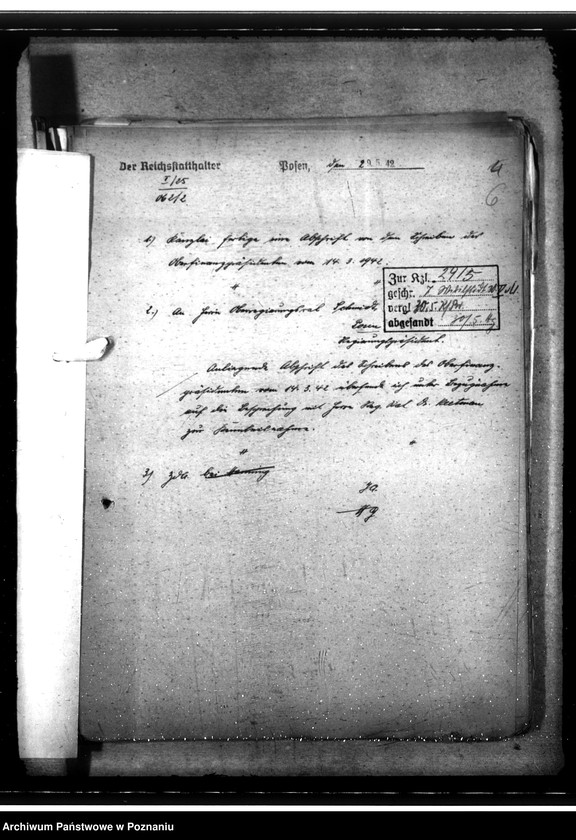 Der Reichsstatthalter Posen, den 29.5.42
I/25
062/2
1.) Kanzlei fertige eine Abschrift von dem Schreiben des
Oberfinanzpräsidenten vom 14.3.1942.
Zur Kzl. 29/5
geschr.
vergl. 30.5.
abgesandt 5.
2.) An Herrn Oberregierungsrat Schmidt,
Posen
Regierungspräsident.
Anliegende Abschrift des Schreibens des Oberfinanz-
präsidenten vom 14.3.42 übersende ich unter Bezugnahme
auf die Besprechung mit Herrn Reg. Rat Dr.
zur Kenntnisnahme.
3.) ZdA.
I.A.
6
Archiwum Państwowe w Poznaniu